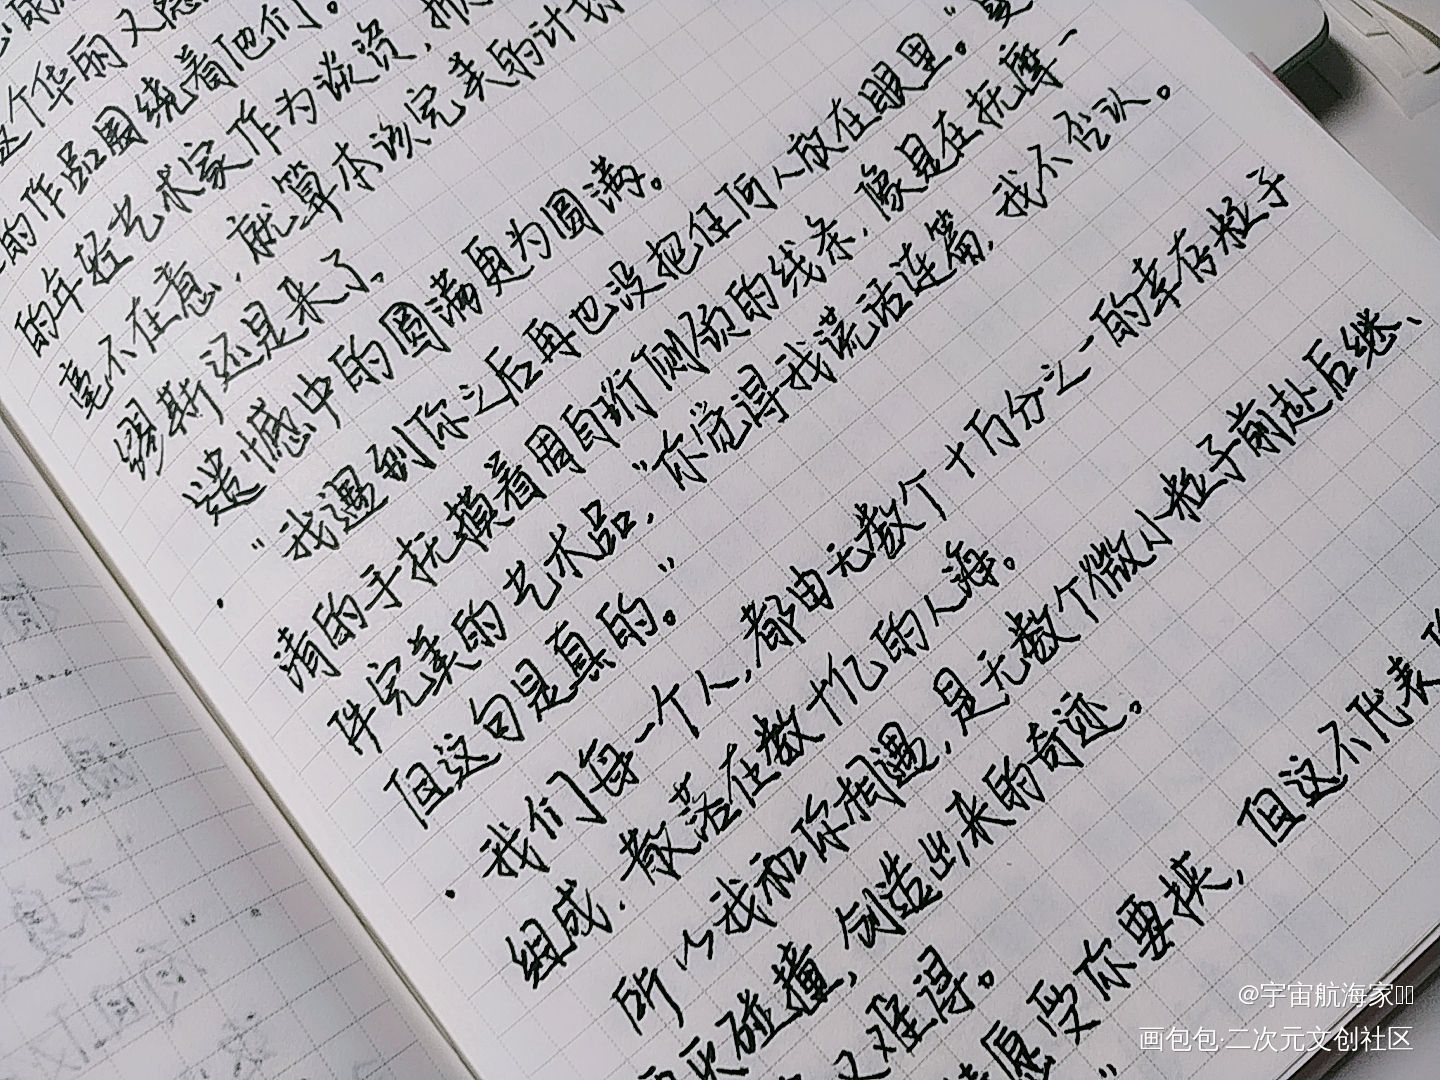 这个华丽又
的作品围绕着他们。
的年轻艺术家作为谈资,掀
毫不在意,就算本该完美的计划
缪斯还是来了。
遗憾中的圆满更为圆满。
“我遇到你之后再也没把任何人放在眼里。”夏
清的手抚摸着周自珩侧颈的线条,像是在抚摩一
件完美的艺术品,“你觉得我谎话连篇,我不否认。
但这句是真的。”
我们每一个人,都由无数个十万分之一的幸存粒子
组成,散落在数十亿的人海。
所以我和你相遇,是无数个微小粒子前赴后继、
碰撞,创造出来的奇迹。
又难得。
愿受你要挟,但这不代表
@宇宙航海家
画包包·二次元文创社区